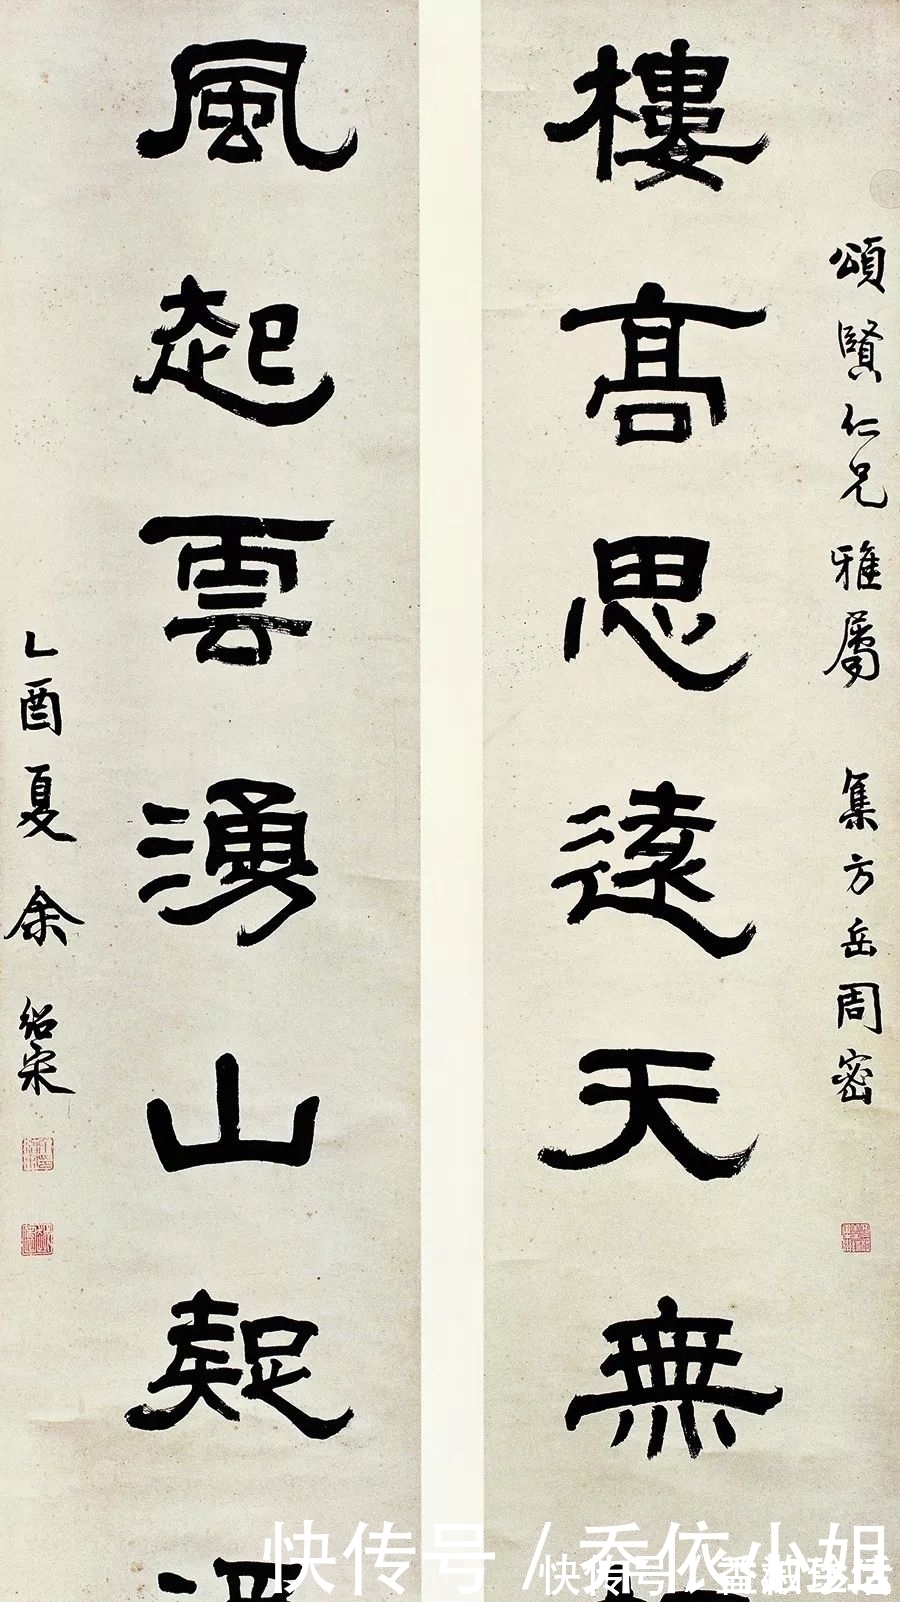 頌賢仁兄雅屬 集方岳周密
樓高思遠天無
風起雲湧山疑
乙酉夏余紹宋
快传号 / 乔依小姐
快传号 /